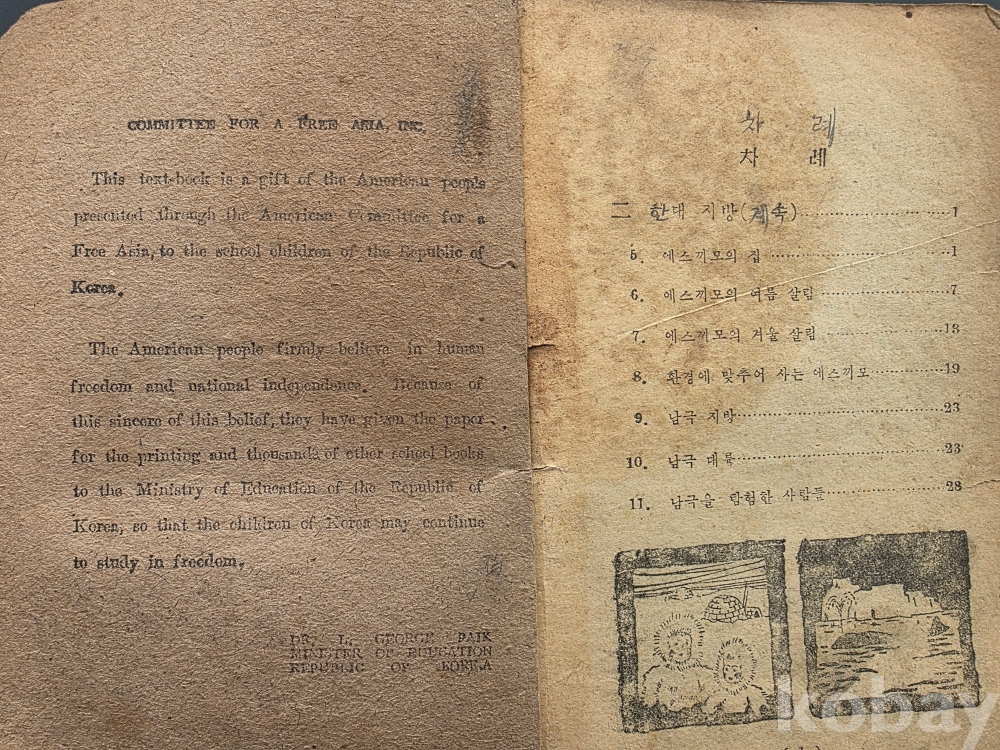 COMMITTEE FOR A FREE ASIA, INC.
This text-book is a gift of the American people
presented through the American Committee for a
Free Asia, to the school children of the Republic of
Korea.
The American people firmly believe in human
freedom and national independence. Because of
this sincere of this belief, they have given the paper
for the printing and thousands of other school books
to the Ministry of Education of the Republic of
Korea, so that the children of Korea may continue
to study in freedom.
DR. L. GEORGE PAIK
MINISTER OF EDUCATION
REPUBLIC OF KOREA
차 례
차 례
二 한대 지방(계속) 1
5. 에스끼모의 집 1
6. 에스끼모의 여름 살림 7
7. 에스끼모의 겨울 살림 13
8. 환경에 맞추어 사는 에스끼모 19
9. 남극 지방 23
10. 남극 대륙 23
11. 남극을 탐험한 사람들 28
kobay